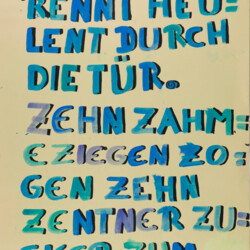 RENNT HEU=
LENT DURCH
DIE TÜR.
ZEHN ZAHM=
E ZIEGEN ZO=
GEN ZEHN
ZENTNER ZU=
CKER ZUM